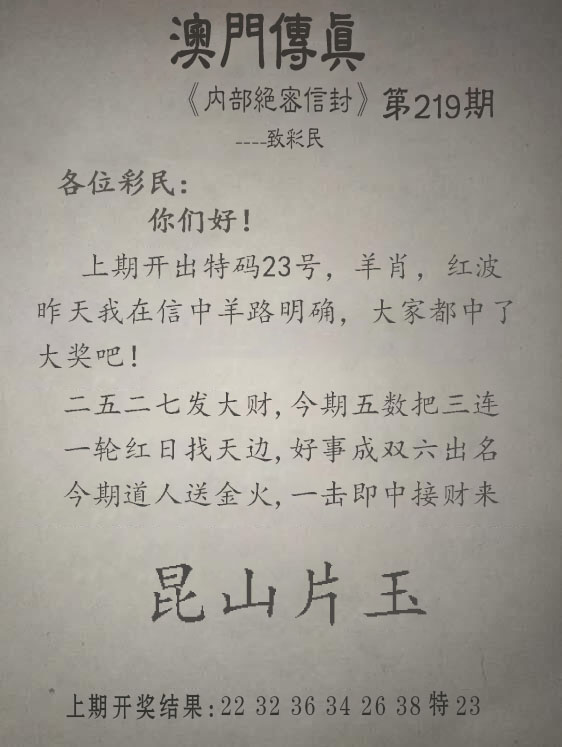 澳門傳眞
《内部絕密信封》第219期
----致彩民
各位彩民：
你们好！
上期开出特码23号，羊肖，红波
昨天我在信中羊路明确，大家都中了
大奖吧！
二五二七发大财,今期五数把三连
一轮红日找天边,好事成双六出名
今期道人送金火,一击即中接财来
昆山片玉
上期开奖结果:22 32 36 34 26 38 特 23